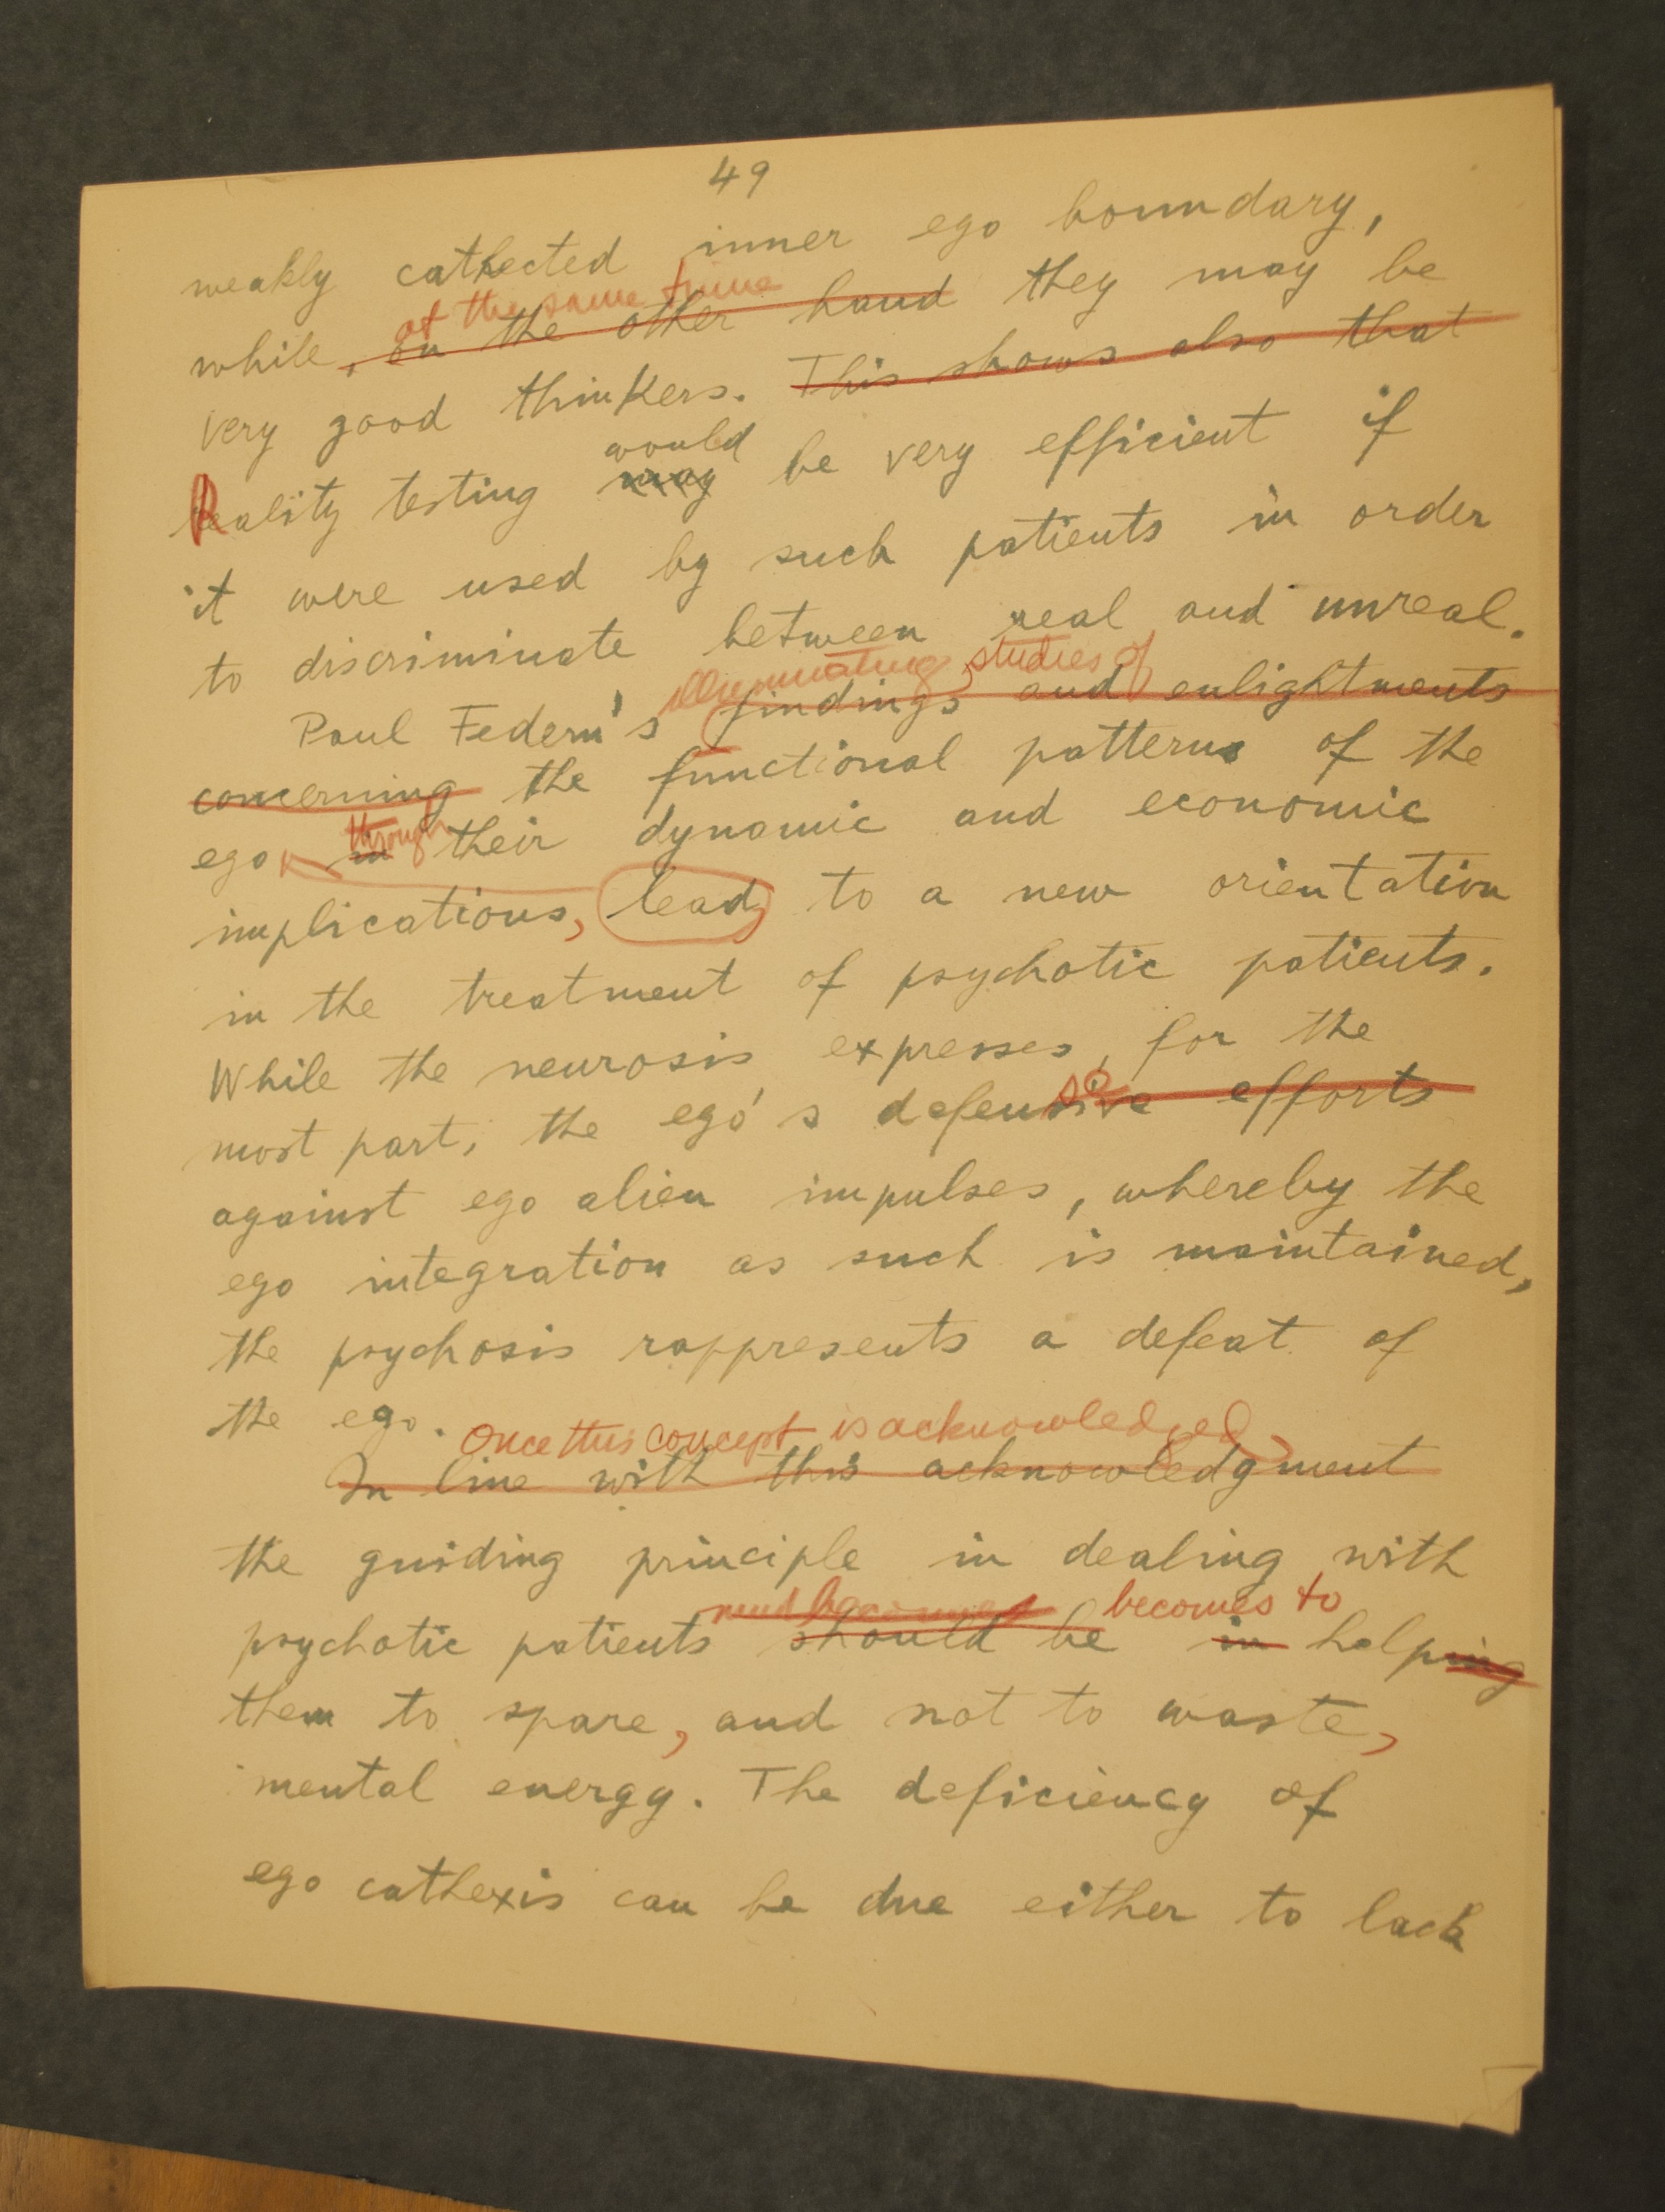 49
weakly cathected inner ego boundary,
at the same time
while, on the other hand they may be
very good thinkers. This shows also that
would
Reality testing may be very efficient if
it were used by such patients in order
to discriminate between real and unreal.
illuminating studies of
Paul Federn's findings and enlightments
concerning the functional patterns of the
through
ego in their dynamic and economic
implications, lead to a new orientation
in the treatment of psychotic patients.
While the neurosis expresses, for the
se
most part, the ego's defensive efforts
against ego alien impulses, whereby the
ego integration as such is maintained,
the psychosis rappresents a defeat of
the ego.
Once this concept is acknowledged,
In line with this acknowledgment
the guiding principle in dealing with
becomes to
psychotic patients should be in helping
them to spare, and not to waste,
mental energy. The deficiency of
ego cathexis can be due either to lack